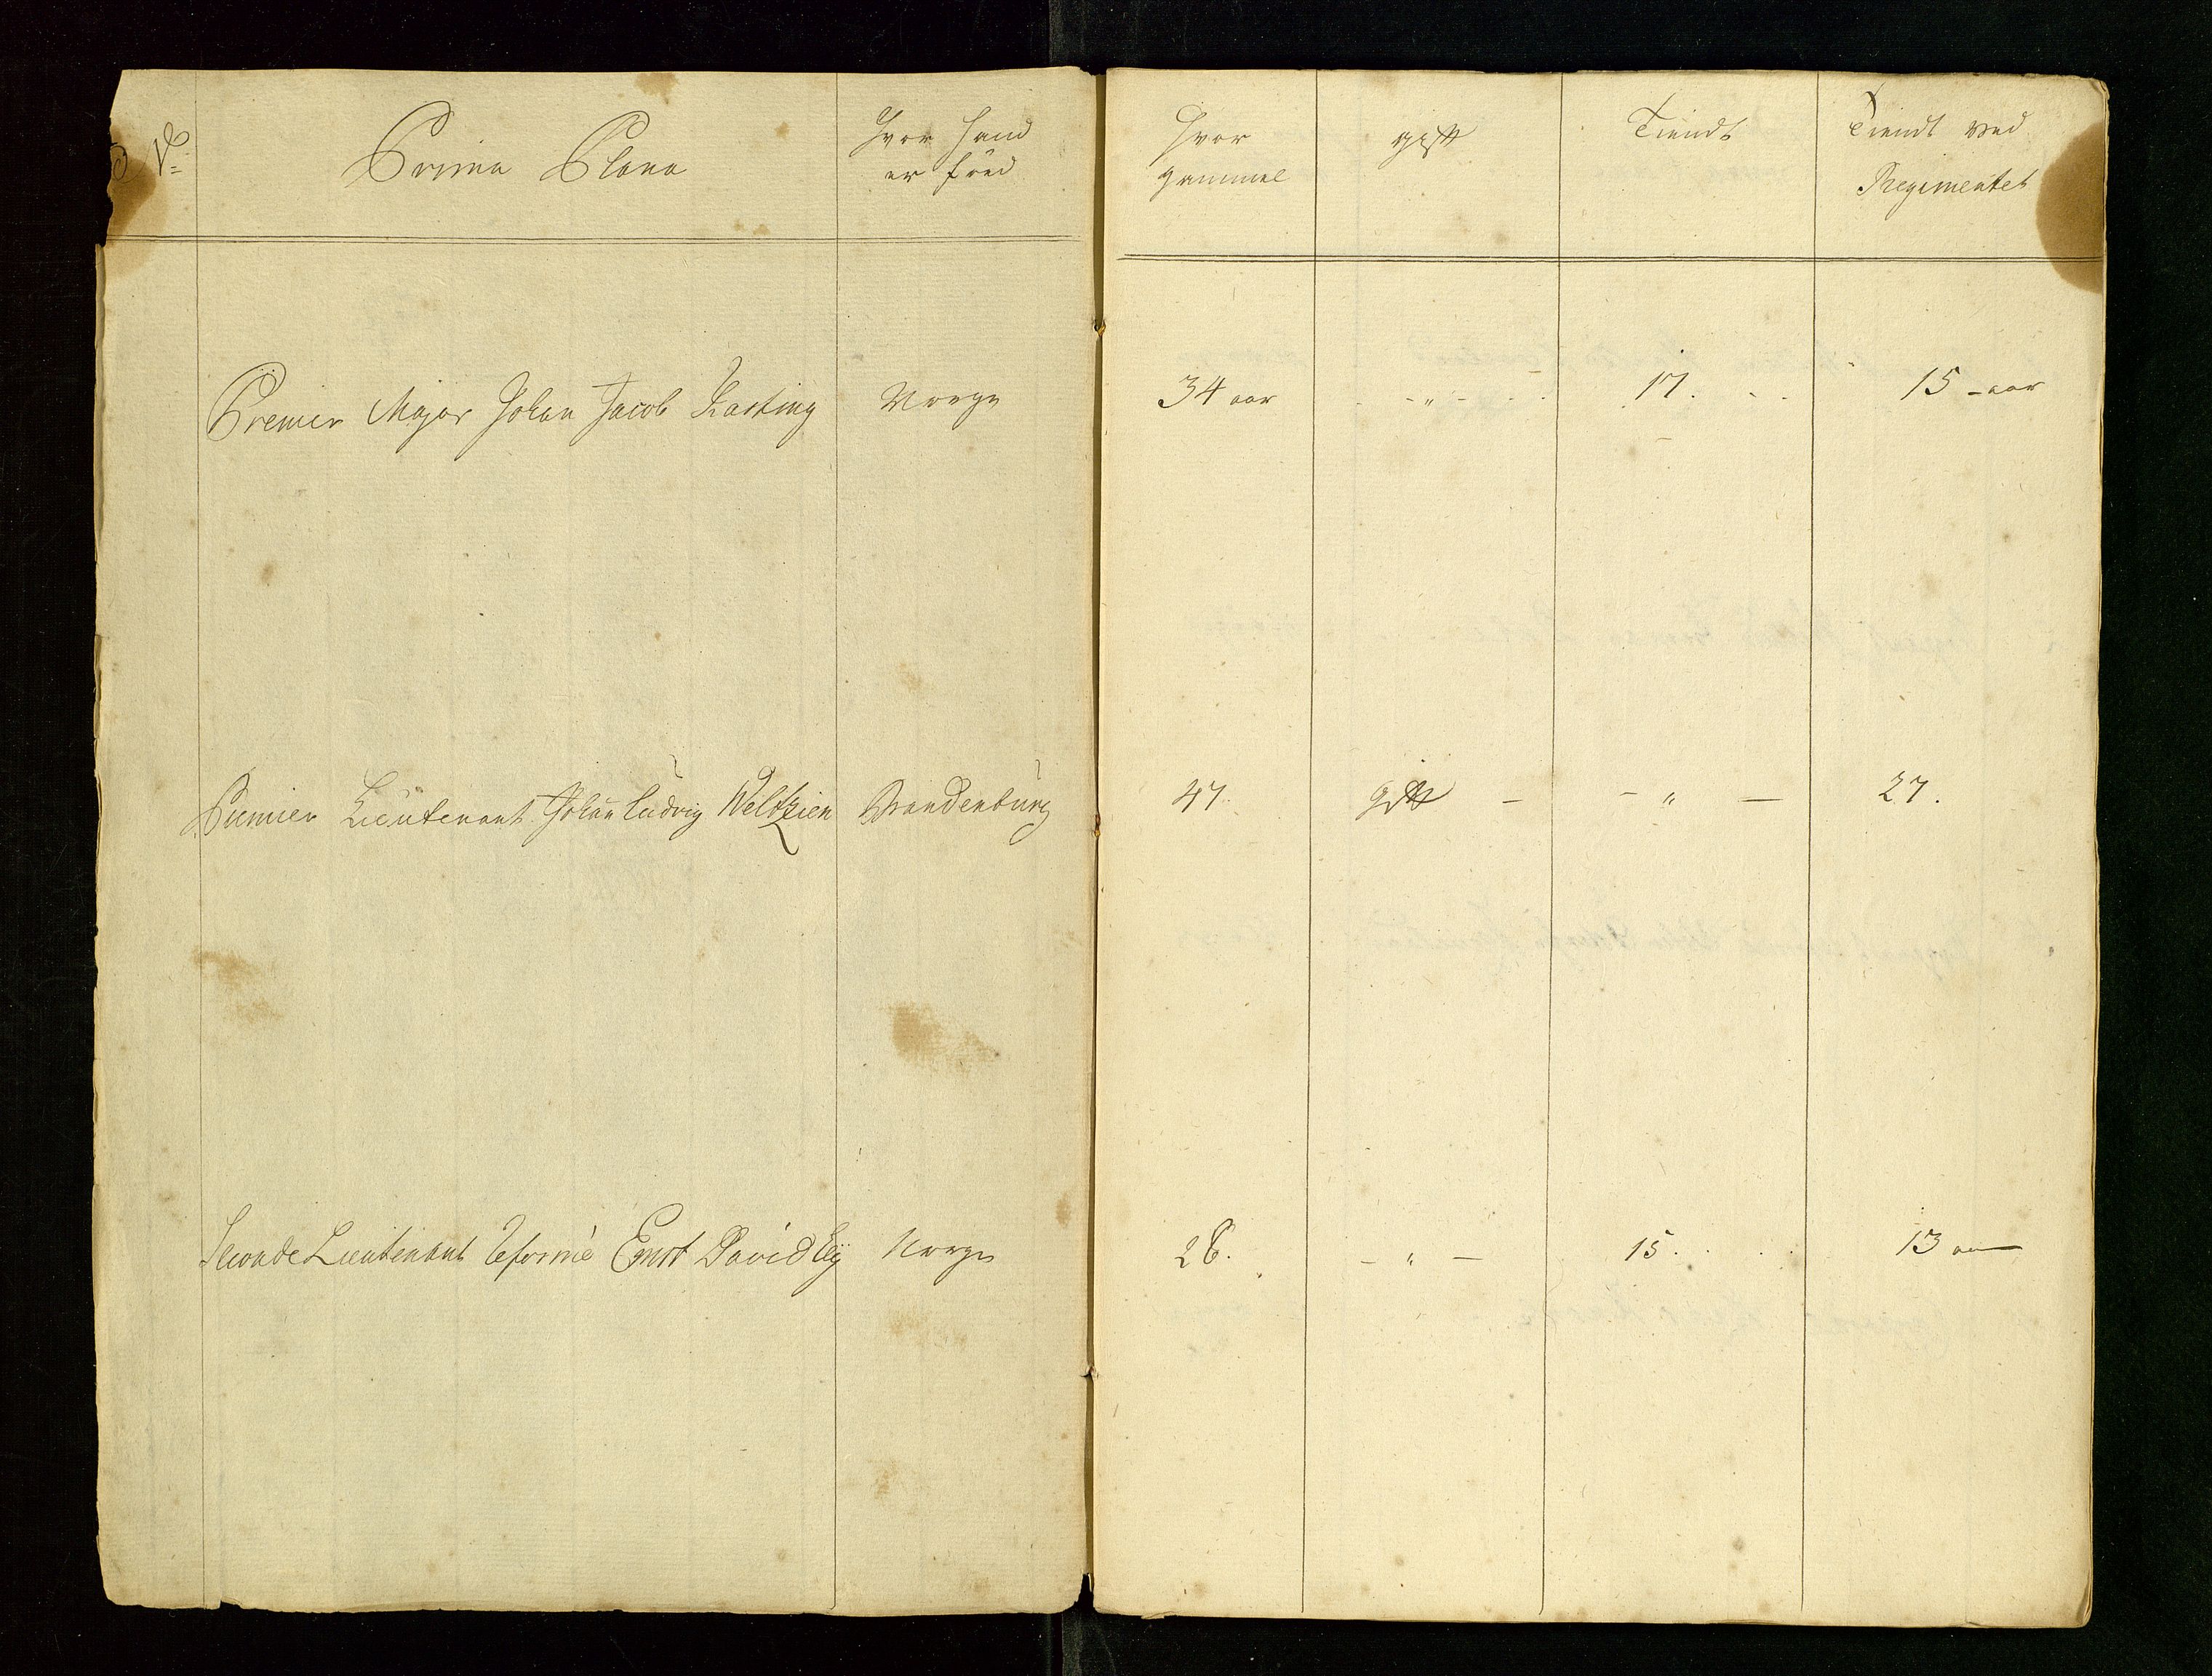 No
Prima Plana
hvor hand
er föed
Hvor
gammel
gift
Tiendt
Tiendt ved
Regimentet
Premier Major Johan Jacob Kasting Norge 34 aar - " - 17. 15 - aar
Premier Lieutenant Johan Ludvig Weltzien Brandenburg 47. gift - - " - 27.
Seconde Lieutenant Reformé Ernst David Ly Norge 28. - " - 15. 13 aar